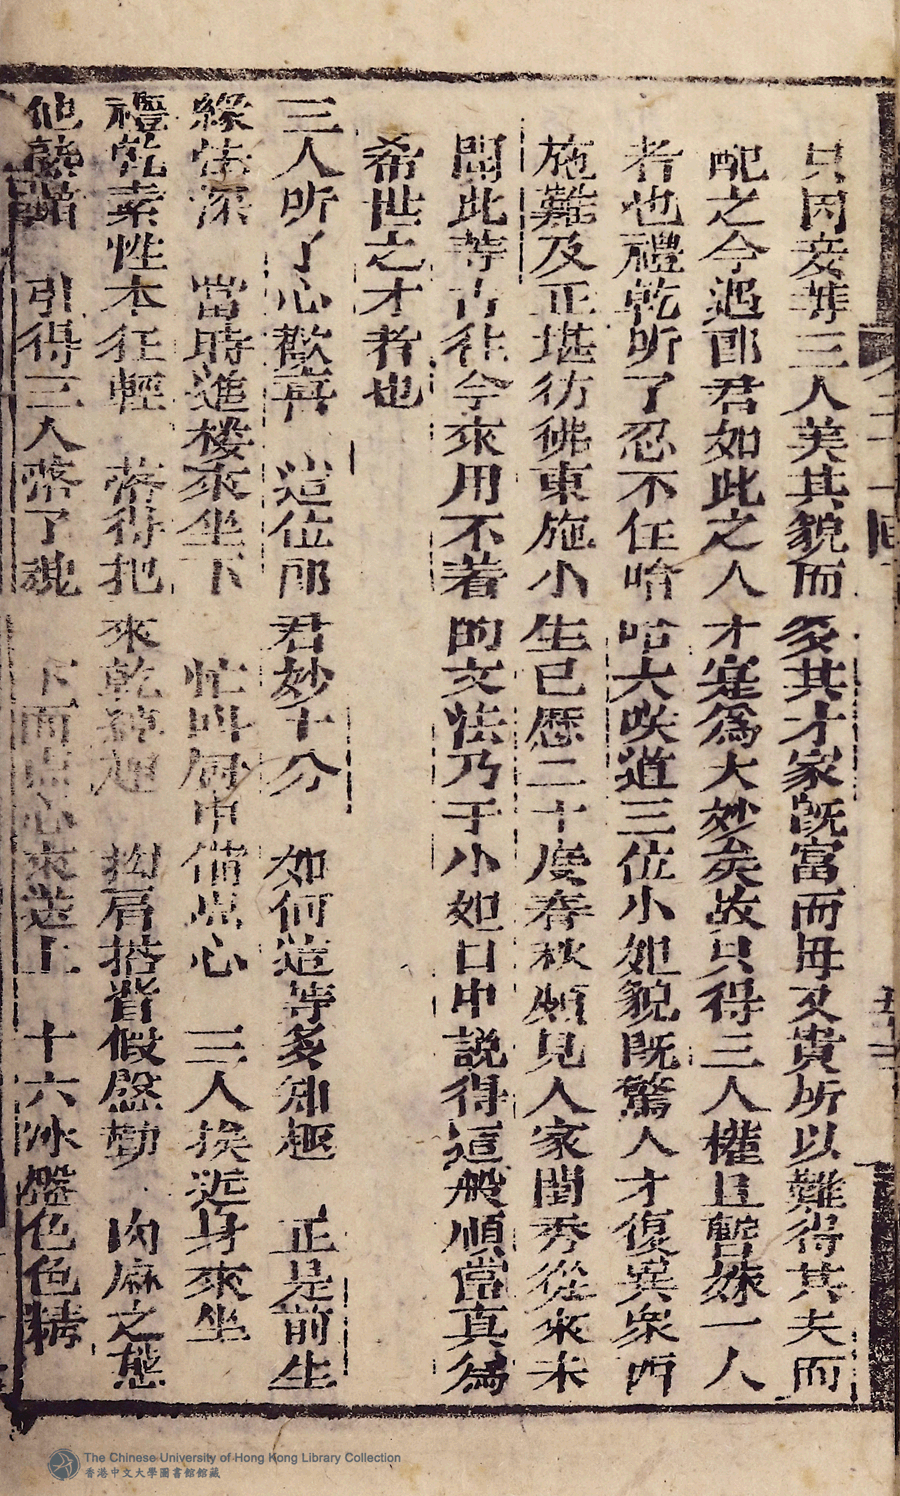 只因妾等三人美其貌而多其才家既富而毋又貴所以難得其夫而
配之今遇郎君如此之人才寔爲大妙矣故只得三人權且暫嫁一人
者也禮乾听了忍不住哈哈大咲道三位小姐貌既驚人才復異衆西
施難及正堪彷彿東施小生已歷二十度春秋頗見人家閨秀從來未
聞此等古往今來用不着的文法乃于小姐口中説得這般順當真爲
希世之才者也
三人听了心歡喜 這位郎君妙十分 如何這等多知趣 正是前生
緣法深 當時進楼來坐下 忙叫厨中備點心 三人挨近身來坐
禮乾素性本狂輕 喬得把來乾趣 拘肩搭背假慇懃 肉麻之態
他 引得三人喬了魂 下面點心來送上 十六氷盤色色精
二十一回
The Chinese University of Hong Kong Library Collection
香港中文大學圖書館館藏